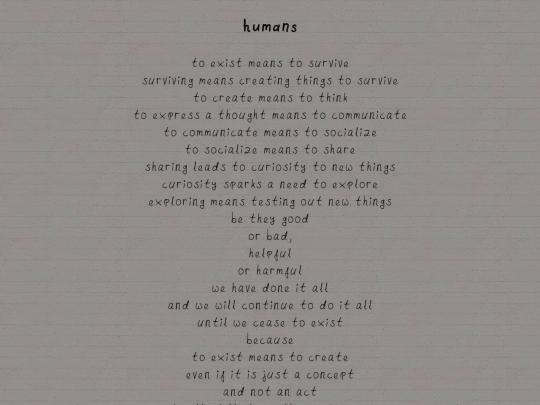 humans
to exist means to survive
surviving means creating things to survive
to create means to think
to express a thought means to communicate
to communicate means to socialize
to socialize means to share
sharing leads to curiosity to new things
curiosity sparks a need to explore
exploring means testing out new things
be they good
or bad,
helpful
or harmful
we have done it all
and we will continue to do it all
until we cease to exist
because
to exist means to create
even if it is just a concept
and not an act